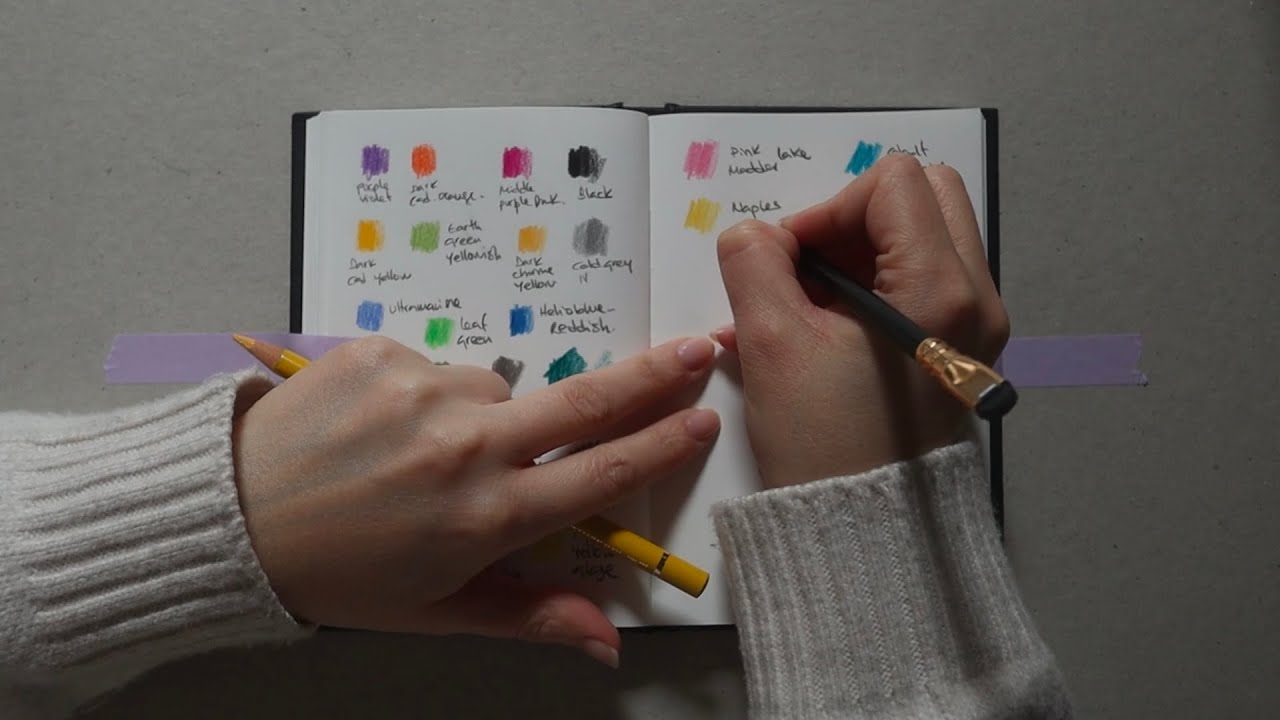 purple
violet
Dark
cad orange.
Middle
purple Pink.
Black
Dark
cad yellow
Earth
green
yellowish
Dark
chrome
yellow
Cold grey
IV
Ultramarine
leaf
green
Helioblue-
Reddish.
Pink Lake
Madder
Naples